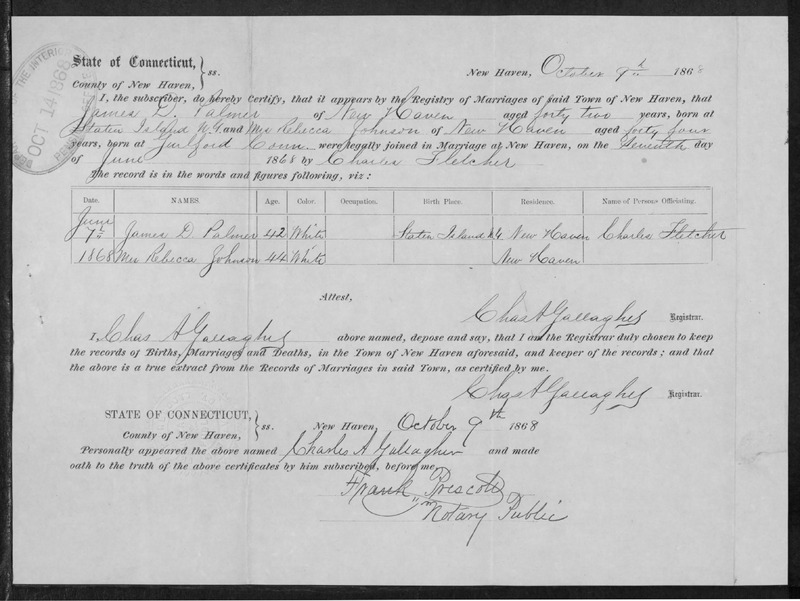 State of Connecticut, } ss.
County of New Haven,
New Haven, October 9th 1868
I, the subscriber, do hereby Certify, that it appears by the Registry of Marriages of said Town of New Haven, that
James D. Palmer of New Haven aged forty two years, born at
Staten Island and Mrs Rebecca Johnson of New Haven aged forty four
years, born at Guilford Conn. were legally joined in Marriage at New Haven, on the Seventh day
of June 1868 by Charles Fletcher
The record is in the words and figures following, viz:
Date. NAMES. Age. Color. Occupation. Birth Place. Residence. Name of Persons Officiating.
June
7th James D Palmer 42 White Staten Island New Haven Charles Fletcher
1868 Mrs Rebecca Johnson 44 White New Haven
Attest,
Chas A Gallagher Registrar.
I, Chas A Gallagher above named, depose and say, that I am the Registrar duly chosen to keep
the records of Births, Marriages and Deaths, in the Town of New Haven aforesaid, and keeper of the records; and that
the above is a true extract from the Records of Marriages in said Town, as certified by me.
Chas A Gallagher Registrar.
STATE OF CONNECTICUT, } ss.
County of New Haven,
New Haven, October 9th 1868
Personally appeared the above named Charles A Gallagher and made
oath to the truth of the above certificates by him subscribed, before me,
Frank Prescott
Notary Public
THE INTERIOR
OCT 14 1868